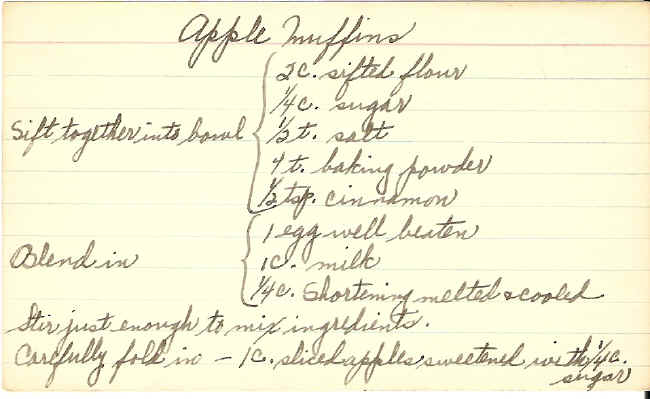 Apple Muffins
2c. sifted flour
1/4c. sugar
Sift together into bowl
1/2 t. salt
4 t. baking powder
1/2 tsp. cinnamon
1 egg well beaten
Blend in
1c. milk
1/4c. Shortening melted & cooled
Stir just enough to mix ingredients.
Carefully fold in – 1c. sliced apples, sweetened with 1/4c.
sugar